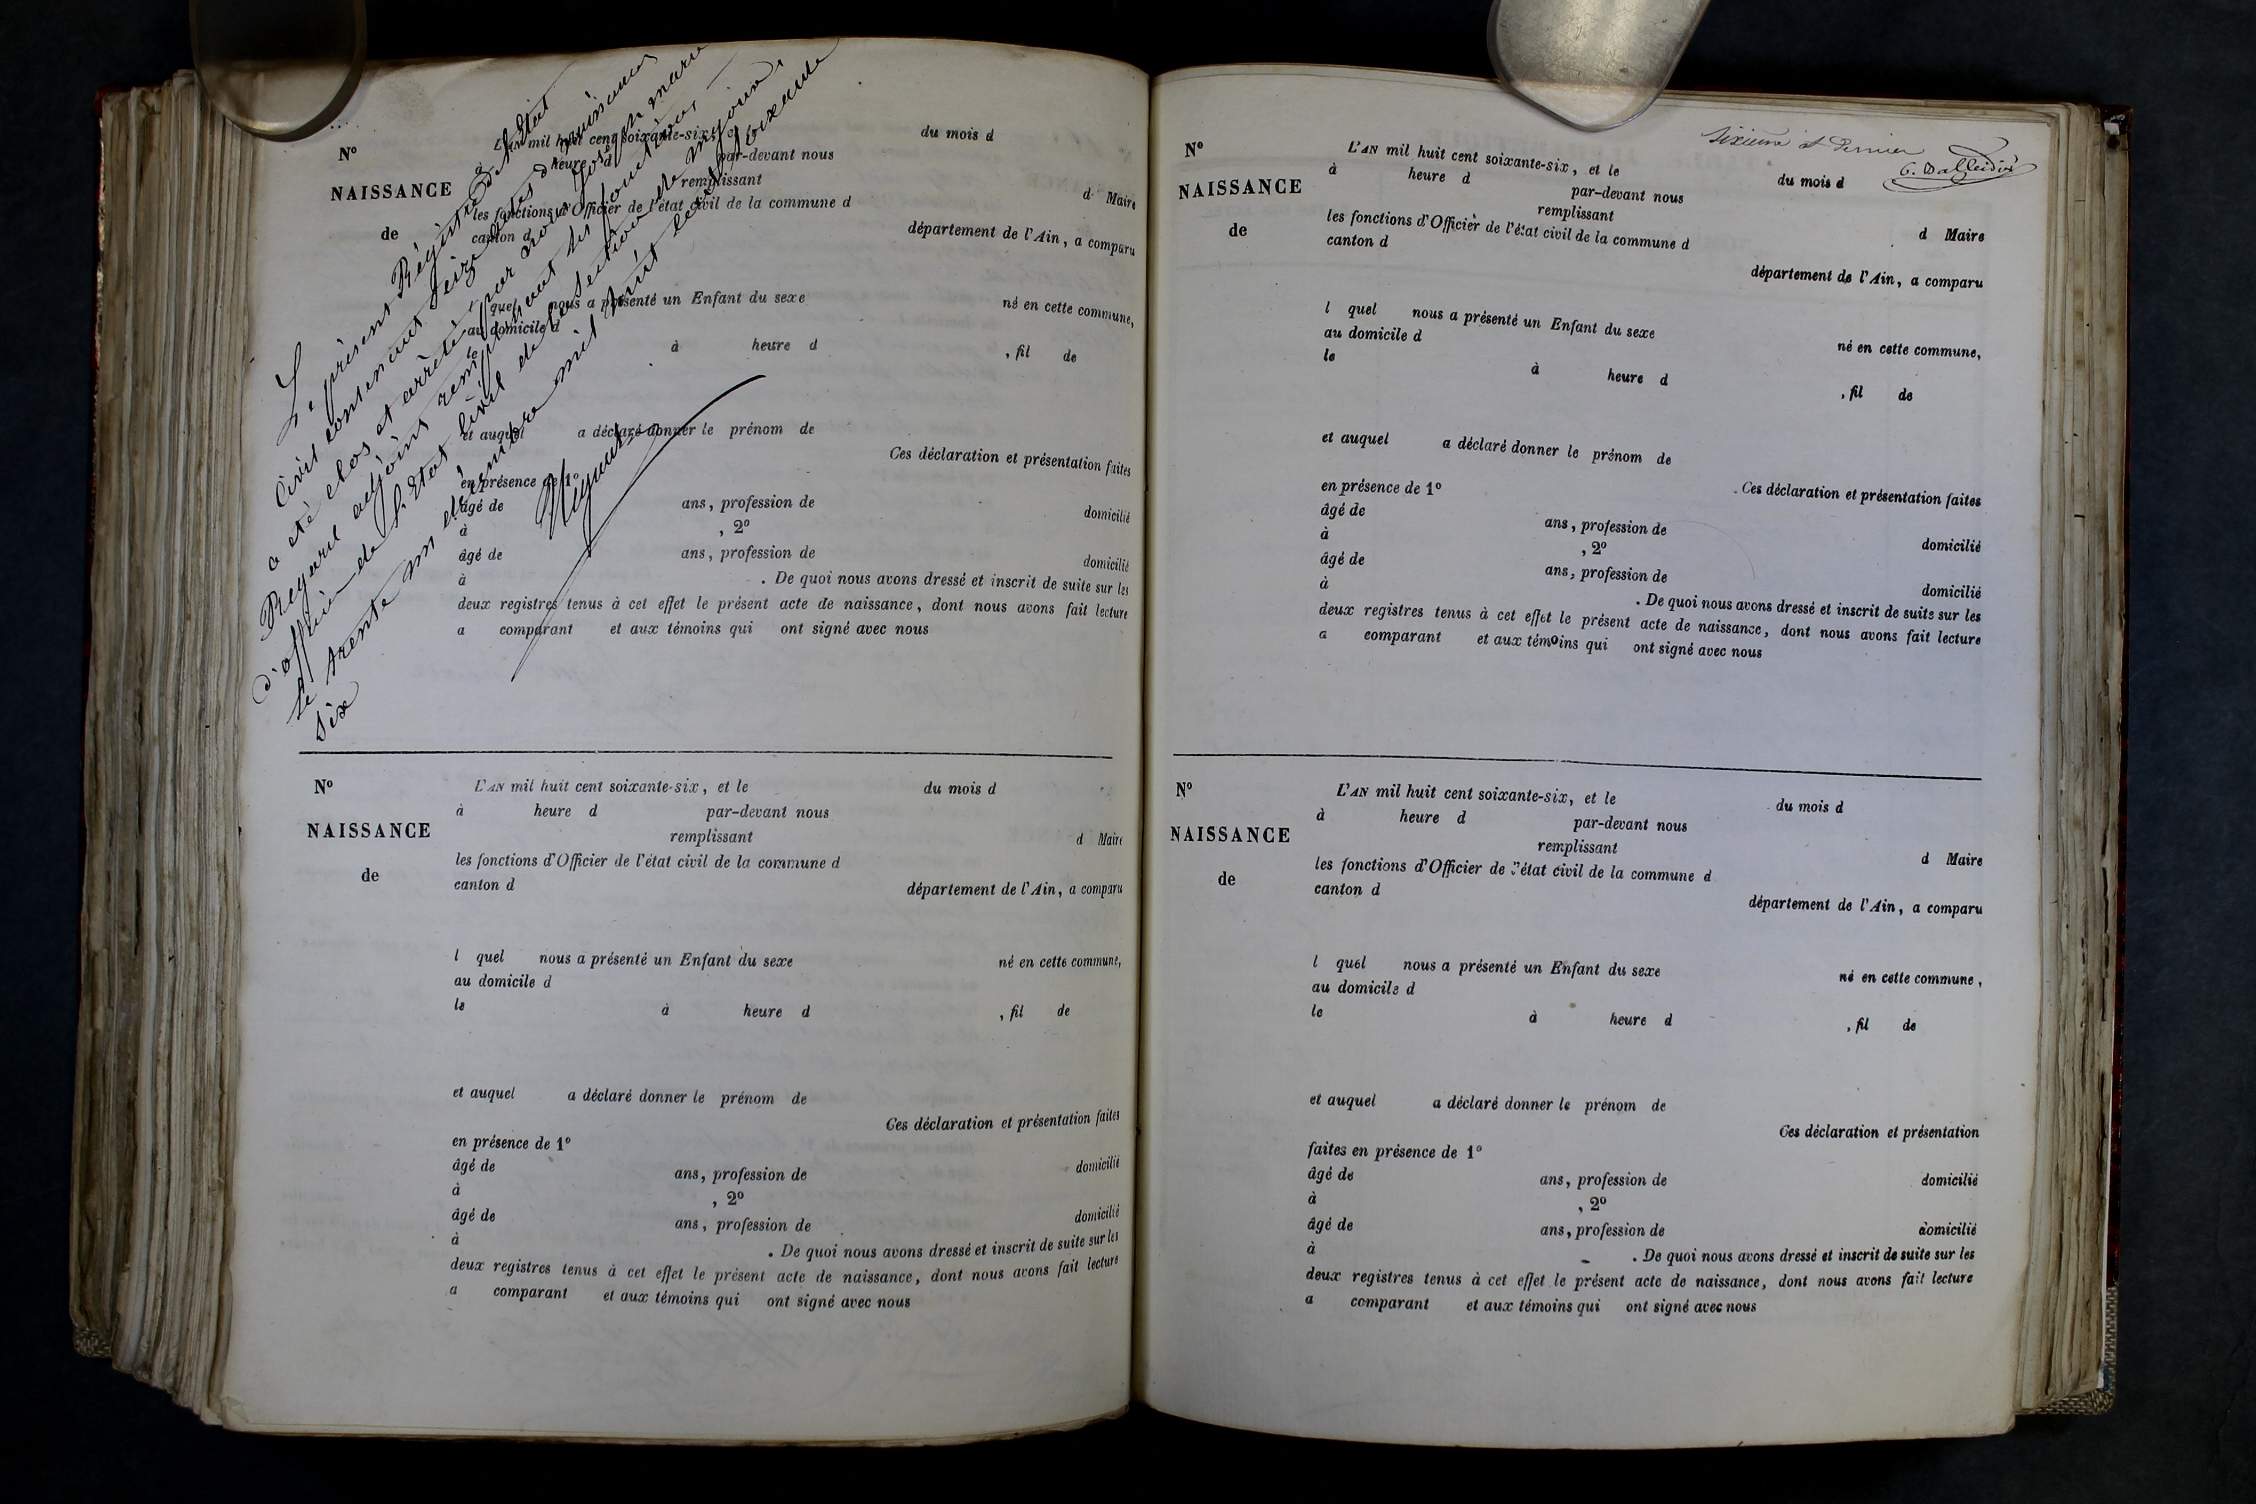 Le présent Régistre de l'Etat
Civil contenant seize actes de naissances
a été clos et arrêté par nous Joseph marie
Reydil adjoint remplissant les fonctions
d'officier de l'Etat Civil de la section de mijoux,
le trente un décembre mil huit cent soixante
six
Nº
NAISSANCE
de
L'AN mil huit cent soixante-six, et le du mois d
à heure d par-devant nous
remplissant d Maire
les fonctions d'Officier de l'état civil de la commune d
canton d département de l'Ain, a comparu
l quel nous a présenté un Enfant du sexe né en cette commune,
au domicile d
le à heure d , fil de
et auquel a déclaré donner le prénom de
Ces déclaration et présentation faites
en présence de 1º
âgé de ans, profession de domicilié
à , 2º
âgé de ans, profession de domicilié
à . De quoi nous avons dressé et inscrit de suite sur les
deux registres tenus à cet effet le présent acte de naissance, dont nous avons fait lecture
a comparant et aux témoins qui ont signé avec nous
Nº
NAISSANCE
de
L'AN mil huit cent soixante-six, et le du mois d
à heure d par-devant nous
remplissant d Maire
les fonctions d'Officier de l'état civil de la commune d
canton d département de l'Ain, a comparu
l quel nous a présenté un Enfant du sexe né en cette commune,
au domicile d
le à heure d , fil de
et auquel a déclaré donner le prénom de
Ces déclaration et présentation faites
en présence de 1º
âgé de ans, profession de domicilié
à , 2º
âgé de ans, profession de domicilié
à . De quoi nous avons dressé et inscrit de suite sur les
deux registres tenus à cet effet le présent acte de naissance, dont nous avons fait lecture
a comparant et aux témoins qui ont signé avec nous
Sixième et Dernier
Nº
NAISSANCE
de
L'AN mil huit cent soixante-six, et le du mois d
à heure d par-devant nous
remplissant d Maire
les fonctions d'Officier de l'état civil de la commune d
canton d département de l'Ain, a comparu
l quel nous a présenté un Enfant du sexe né en cette commune,
au domicile d
le à heure d , fil de
et auquel a déclaré donner le prénom de
Ces déclaration et présentation faites
en présence de 1º
âgé de ans, profession de domicilié
à , 2º
âgé de ans, profession de domicilié
à . De quoi nous avons dressé et inscrit de suite sur les
deux registres tenus à cet effet le présent acte de naissance, dont nous avons fait lecture
a comparant et aux témoins qui ont signé avec nous
Nº
NAISSANCE
de
L'AN mil huit cent soixante-six, et le du mois d
à heure d par-devant nous
remplissant d Maire
les fonctions d'Officier de l'état civil de la commune d
canton d département de l'Ain, a comparu
l quel nous a présenté un Enfant du sexe né en cette commune,
au domicile d
le à heure d , fil de
et auquel a déclaré donner le prénom de
Ces déclaration et présentation
faites en présence de 1º
âgé de ans, profession de domicilié
à , 2º
âgé de ans, profession de domicilié
à . De quoi nous avons dressé et inscrit de suite sur les
deux registres tenus à cet effet le présent acte de naissance, dont nous avons fait lecture
a comparant et aux témoins qui ont signé avec nous